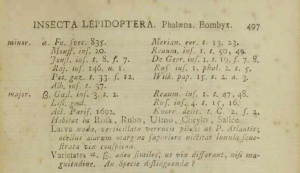 INSECTA LEPIDOPTERA. Phalæna. Bombyx. 497
minor. α. Fn. svec. 835. Merian. eur. t. 13, 23.
Mouff. inf. Reaum. inf. 1. t. 50, 49.
Jonst. inf. t. 8. f. 7. De Geer. inf. 1. t. 19, f. 7. 8.
Raj. inf. 146. n. 1. Rœf. inf. 1. phal. 2. t. 5.
Pet. gaz. t. 33. f. 12. Wilk. pap. 15. t. 2. a. 3.
Alb. inf. t. 37.
major. β. Gœd. inf. 3. t. 2. Reaum. inf. 1. t. 47, 48.
List. gœd. Rœf. inf. 4. t. 15, 16.
Act. Parif. 1692. t. 2. f. 2.
Habitat in Rosa, Rubo, Ulmo, Salice.
Larva nuda, verticillata verrucis pilosis ut P. Atlantis;
ocellus alarum margine superiore nictitat lunula fenestrata vix conspicua.
Varietates α. β. adeo similes, ut vix differant, nisi magnitudine. An Specie distinguendæ?